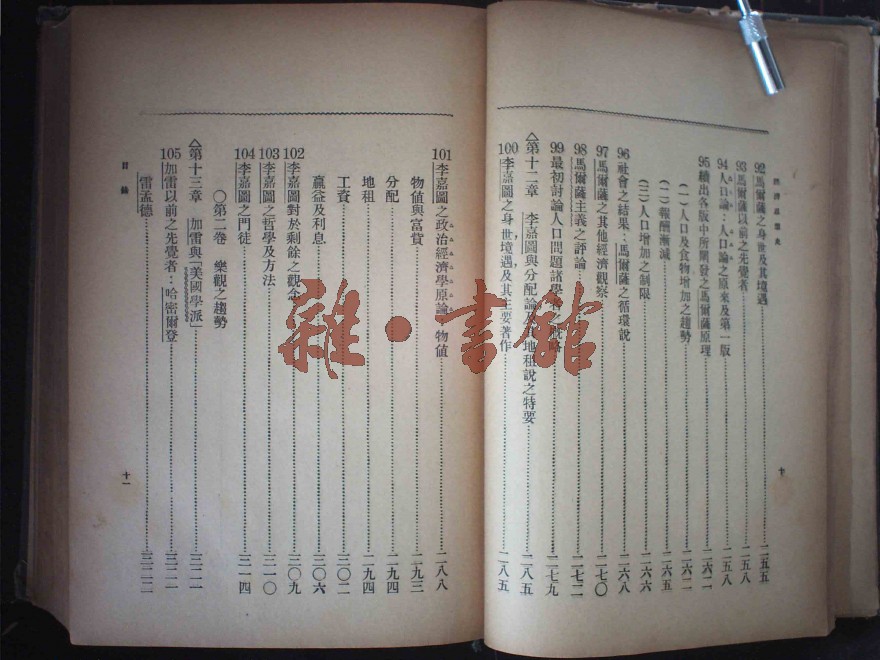 經濟思想史
92 馬爾薩之身世及其境遇……二五五
93 馬爾薩以前之先覺者……二五八
94 人口論：人口論之原來及第一版……二五八
95 續出各版中所闡發之馬爾薩原理……二六二
（一）人口及食物增加之趨勢……二六二
（二）報酬漸減……二六五
（三）人口增加之制限……二六六
96 社會之結果：馬爾薩之循環說……二六八
97 馬爾薩之其他經濟觀察……二七〇
98 馬爾薩主義之評論……二七二
99 最初討論人口問題諸學者之戰略……二七九
第十二章 李嘉圖與分配論及其地租說之特要……二八五
100 李嘉圖之身世境遇及其主要著作……二八五
十
101 李嘉圖之政治經濟學原論：物值……二八八
物值與富貲……二九三
分配……二九四
地租……二九四
工資……三〇二
贏益及利息……三〇六
102 李嘉圖對於剩餘之觀念……三〇九
103 李嘉圖之哲學及方法……三一〇
104 李嘉圖之門徒……三一四
〇第二卷 樂觀之趨勢
第十三章 加雷與「美國學派」……三二一
105 加雷以前之先覺者：哈密爾登……三二一
雷孟德……三二二
目錄
十一
雜·書館